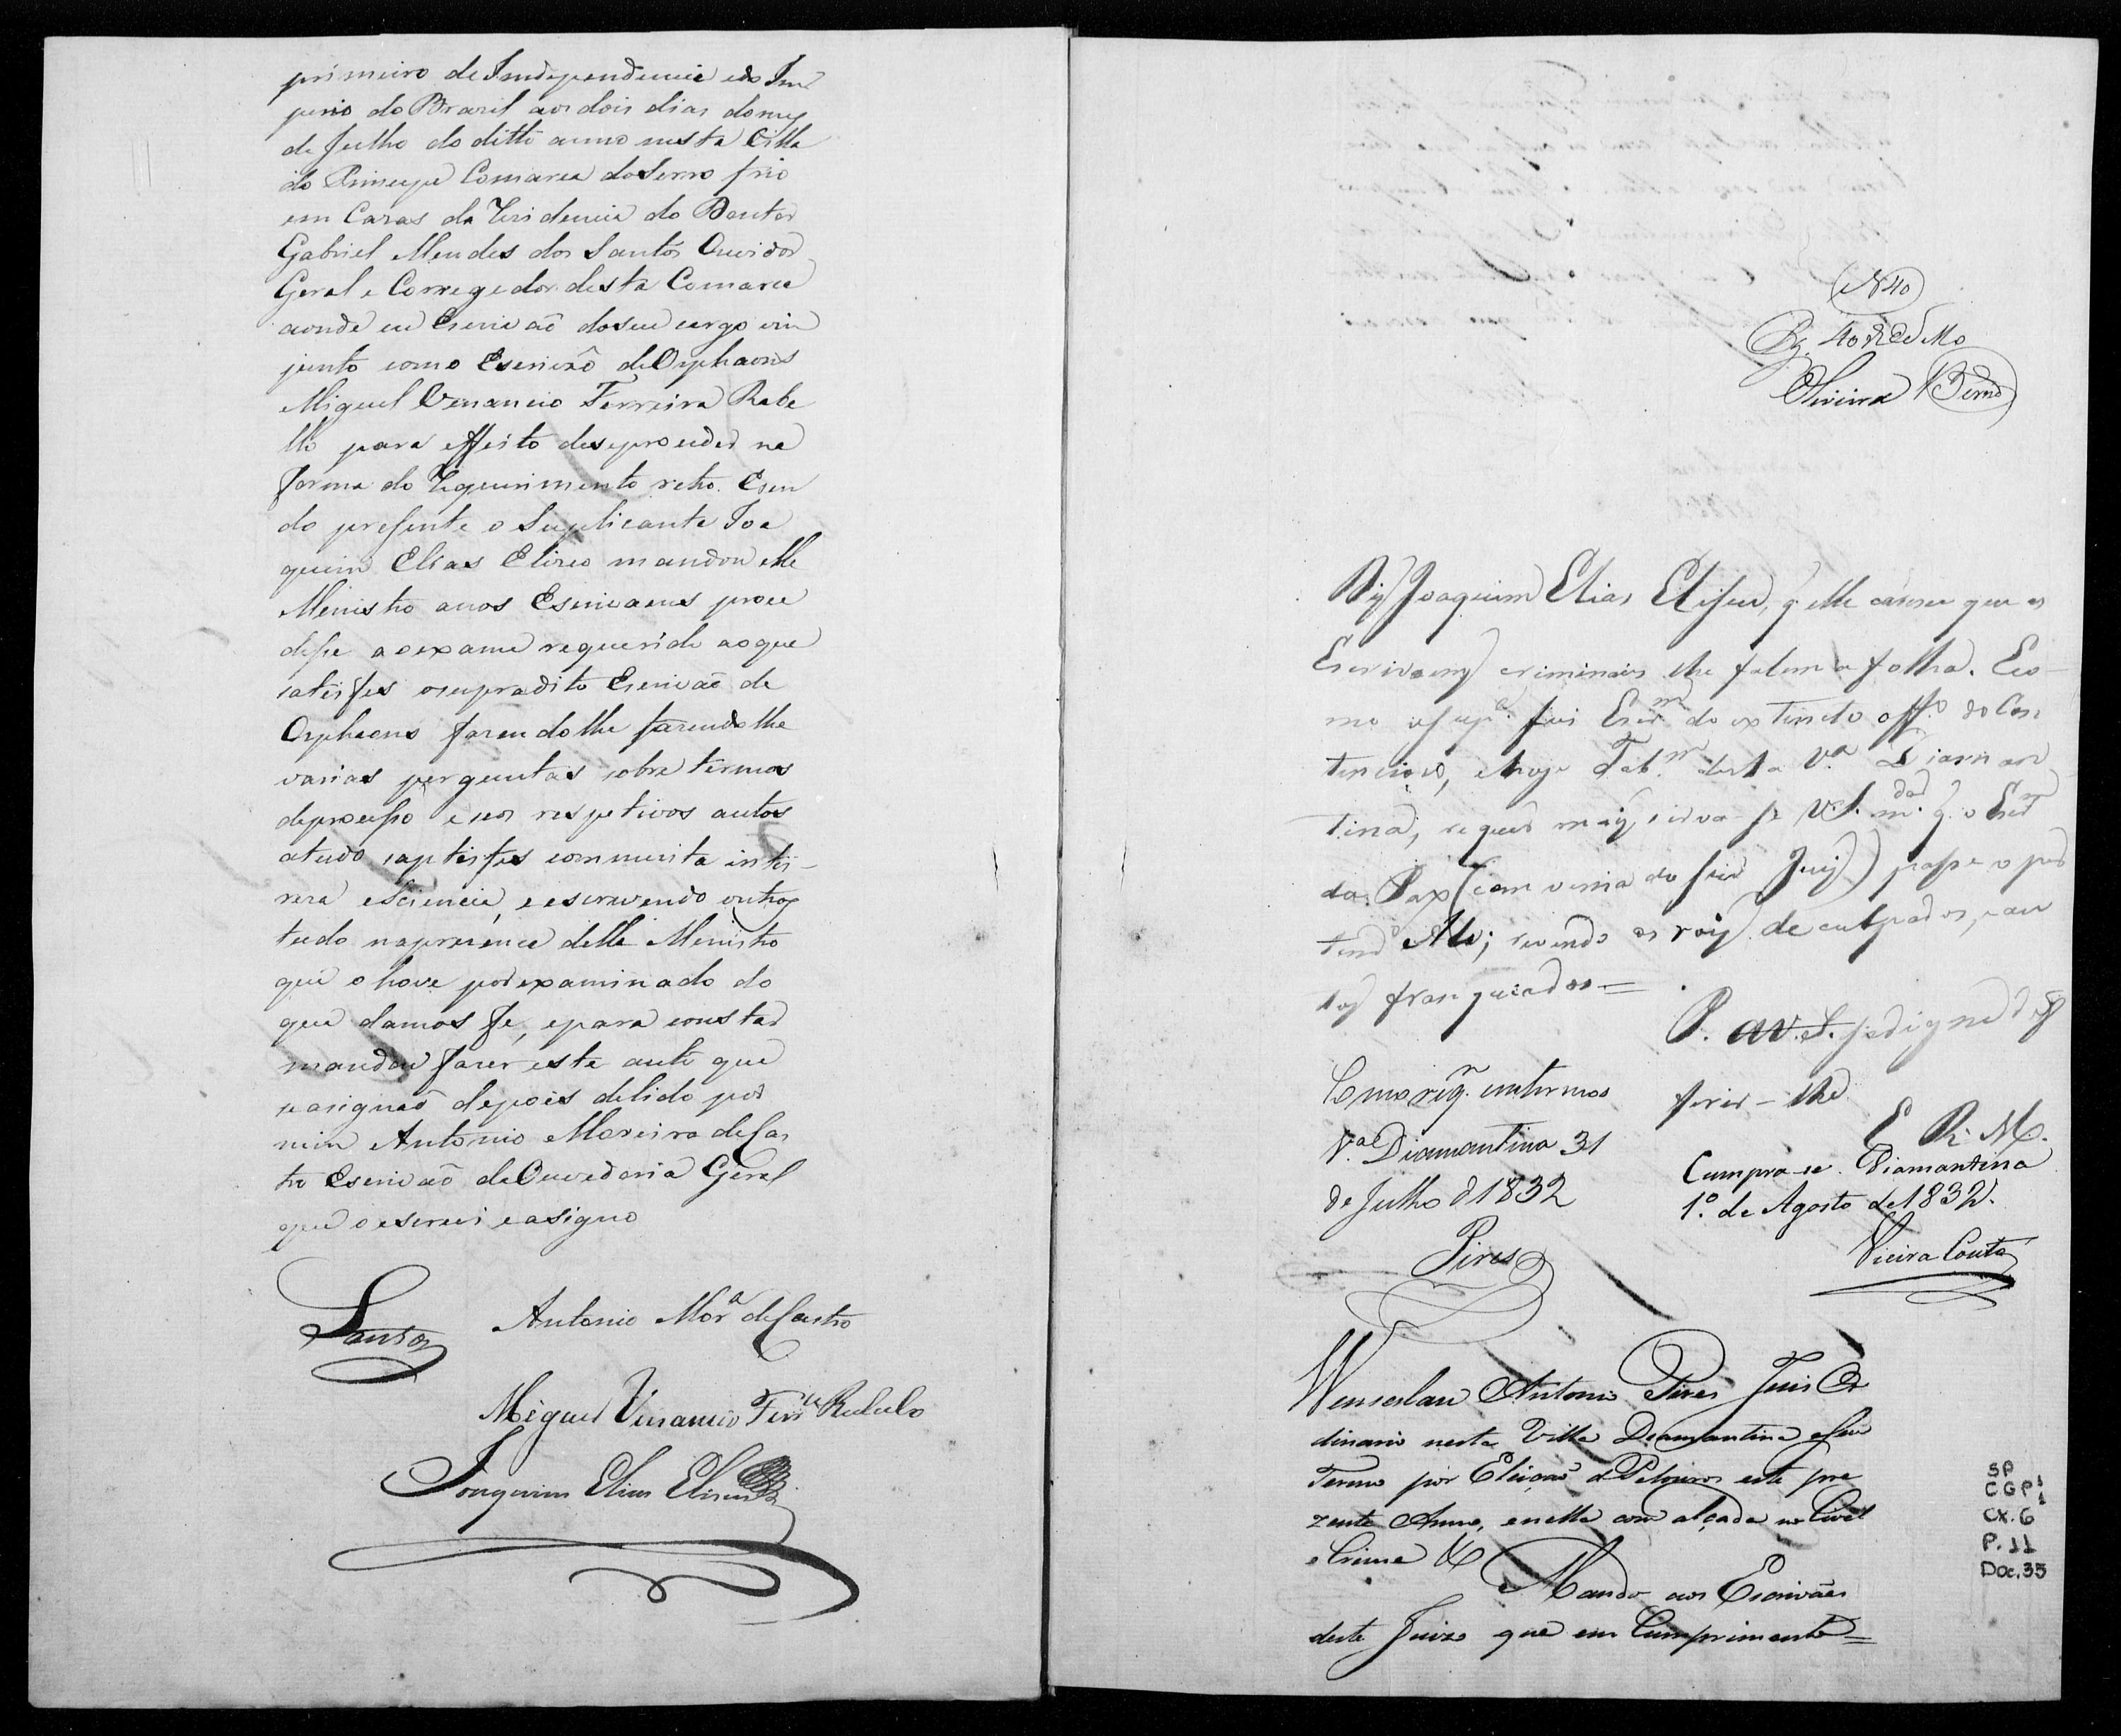 primeiro de Independencia edo Im
perio do Brazil aos dois dias domes
de Julho do ditto anno nesta Villa
do Principe Comarca doSerro frio
em Cazas da Rezidencia do Doutor
Gabriel Mendes dos Santos Ouvidor
Geral e Corregedor desta Comarca
aonde eu Escrivaõ doseu cargo vim
junto como Escrivaõ deOrphaons
Miguel Venancio Ferreira Rabe
llo para effeito deseproceder na
forma do Requerimento retro. Esen
do prezente o Suplicante Joa
quim Elias Elizeo mandou elle
Ministro anos Escrivaens proce
desse aoexame requerido aoque
satisfes osupradito Escrivaõ de
Orphaons fazendolhe fazendolhe
varias perguntas sobre termos
deprocesso e seos respetivos autos
atudo saptisfes commuita intei-
reza eSciencia, eescrevendo outros
tudo naprezença delle Ministro
que ohove porexaminado do
que damos fe, epara constar
mandou fazer este auto que
seasignaõ depois delido por
mim Antonio Moreira deCas
tro Escrivaõ daOuvedoria Geral
que oescrevi easigno
Santos
Antonio Mor.a deCastro
Miguel Venancio Ferr.a Rabelo
Joaquim Elias Elizeu
N 40
Pg. 40 r
Oliveira
Diz Joaquim Elias Elizeu, q. elle carese que os
Escrivaens criminais lhe falem a folha. Eco-
mo osup.e foi Escr.m do extincto off.o do Con
tencioso, ehoje Tab.m desta V.a Diaman
tina, requer maes sirva-se V.S. m.dar q. o Escr.m
da Paz (com venia do seu Juiz) passe o
revendo os rois de culpados, eau
tos franquiados =
P. a V.S. sedigne def
ferir-lhe
E R. M.
Como req.r emtermos
V.a Diamantina 31
de Julho d 1832
Pires
Cumpra-se. Diamantina
1.o de Agosto de 1832.
Vieira Couto
Wenseslau Antonio Pires Juis Or
dinario nesta Villa Diamantina eSeu
Termo por Eleiçaõ dePelouros este pre
zente Anno, enella com alçada no Civel
eCrime &
Mando aos Escrivães
deste Juizo que em Cumprimento=
SP
CGP1
CX.6
P.11
Doc.35